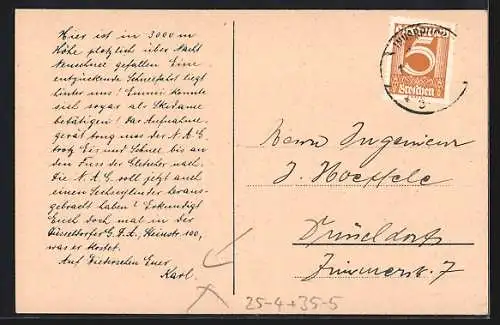 Hier ist in 3000 m
Höhe plötzlich über Nacht
Neuschnee gefallen. Eine
entzückende Schneefahrt liegt
hinter uns! Emmi konnte
sich sogar als Skidame
betätigen! Das Aufnahme-
gerät trug uns der N.A.G.
trotz Eis und Schnee bis an
den Fuss der Gletscher nach.
Die N.A.G. soll jetzt auch
einen Sechszylinder heraus-
gebracht haben! Erkundigt
Euch doch mal in der
Düsseldorfer G.F.A., Steinstr. 100,
was er kostet.
Auf Wiedersehen Euer
Karl.
5
Groschen
Herrn Ingenieur
J. Hoeffele
Düsseldorf
Zimmerstr. 7
25-4+35-5